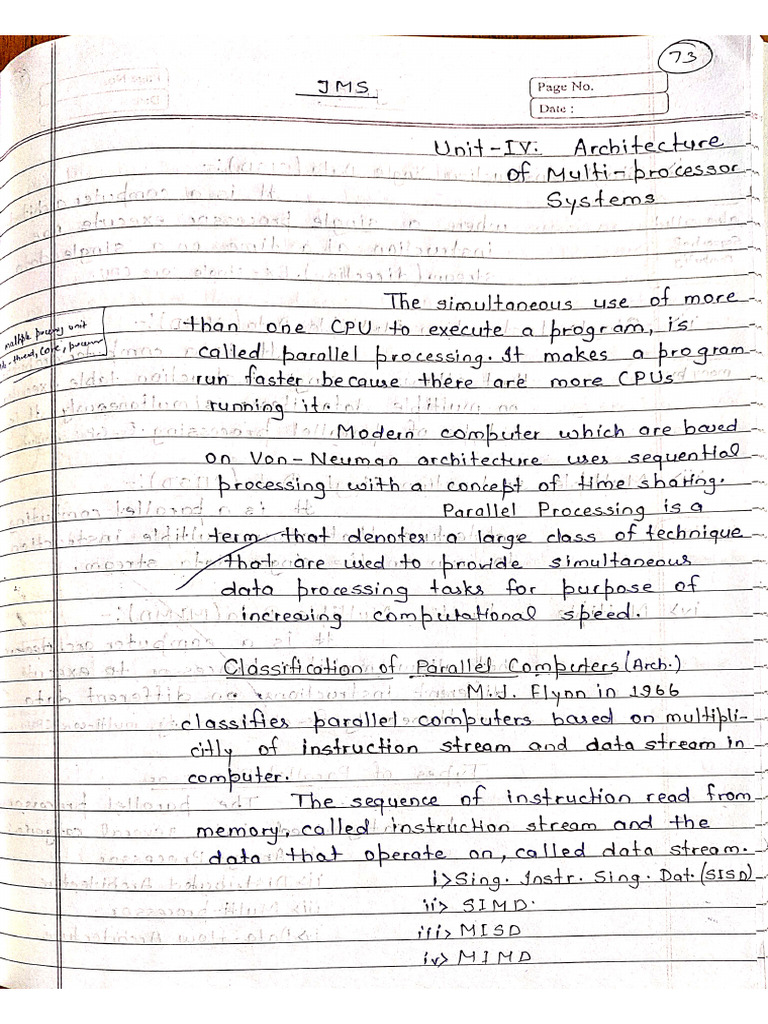 73
JMS
Page No.
Date :
Unit-IV: Architecture
of Multi-processor
Systems
The simultaneous use of more
than one CPU to execute a program, is
called parallel processing. It makes a program
run faster because there are more CPUs
running it.
multiple unit
thread, core,
Modern computer which are based
on Von-Neuman architecture uses sequential
processing with a concept of time sharing.
Parallel Processing is a
term that denotes a large class of technique
that are used to provide simultaneous
data processing tasks for purpose of
increasing computational speed.
Classification of Parallel Computers (Arch.)
M.J. Flynn in 1966
classifies parallel computers based on multipli-
citly of instruction stream and data stream in
computer.
The sequence of instruction read from
memory, called instruction stream and the
data that operate on, called data stream.
i> Sing. Instr. Sing. Dat. (SISD)
ii> SIMD.
iii> MISD
iv> MIMD